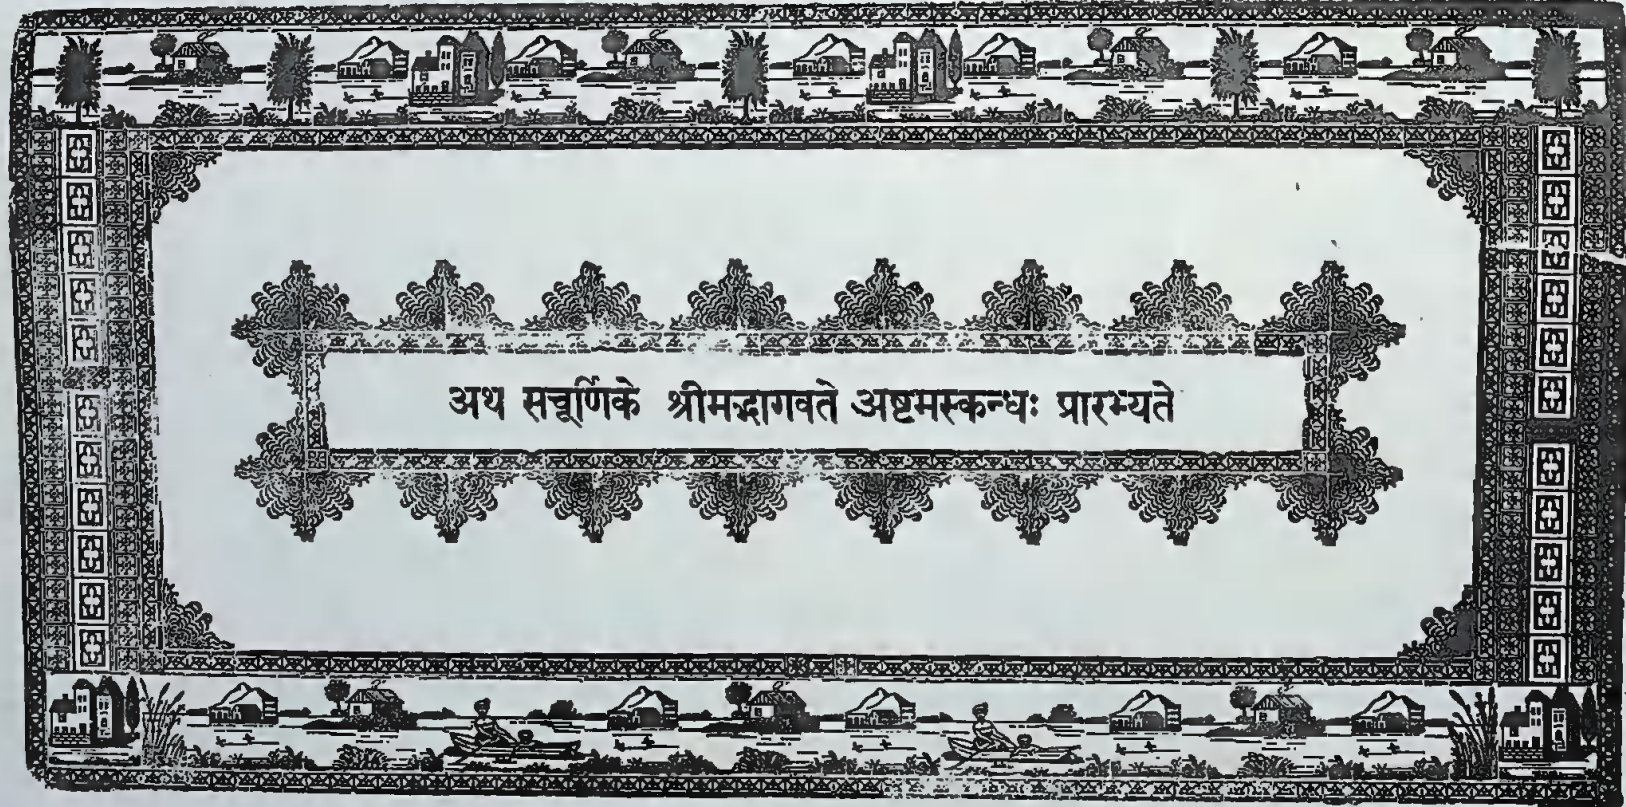 अथ सचूर्णिके श्रीमद्भागवते अष्टमस्कन्धः प्रारभ्यते